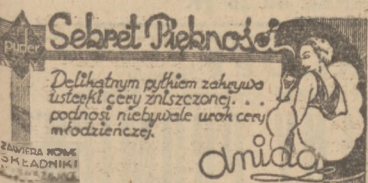 Puder
Sekret Piękności
Delikatnym pyłkiem zakrywa
usterki cery zniszczonej...
podnosi niebywale urok cery
młodzieńczej.
ZAWIERA NOWE
SKŁADNIKI
anida